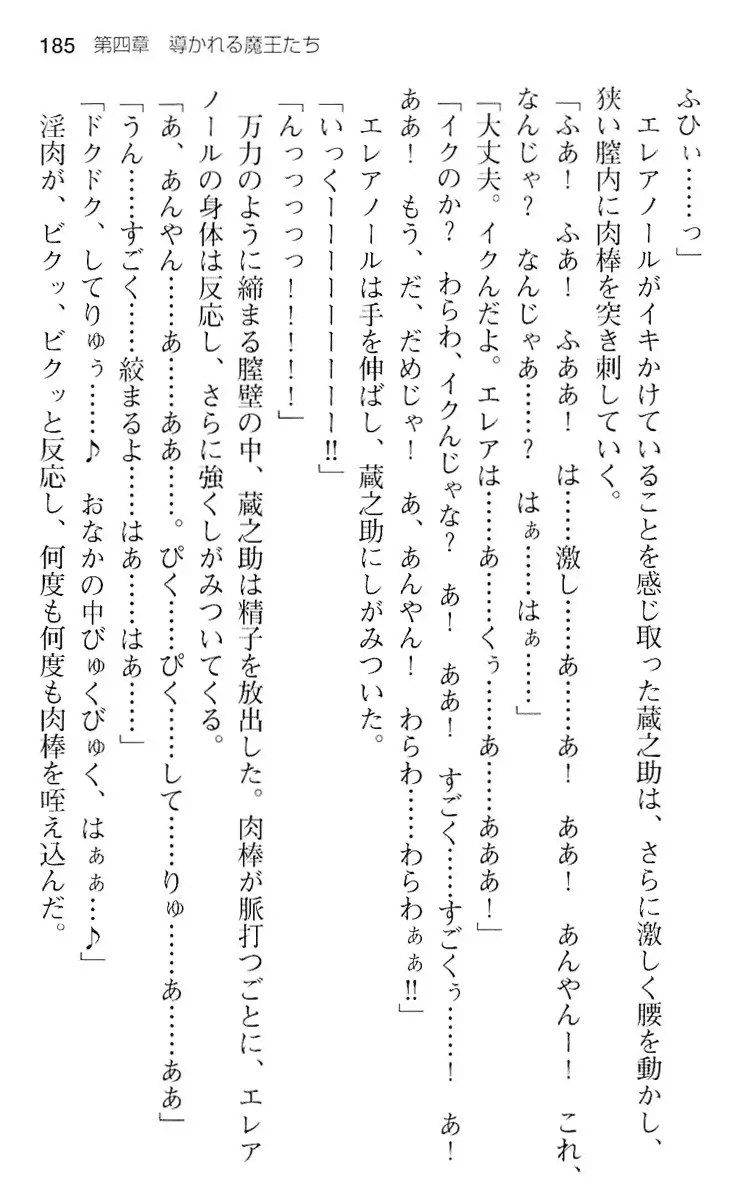 185 第四章　導かれる魔王たち
ふひぃ……っ」
　エレアノールがイキかけていることを感じ取った蔵之助は、さらに激しく腰を動かし、
狭い膣内に肉棒を突き刺していく。
「ふあ！　ふあ！　ふああ！　は……激し……あ……あ！　ああ！　あんやんー！　これ、
なんじゃ？　なんじゃあ……？　はぁ……はぁ……」
「大丈夫。イクんだよ。エレアは……あ……くぅ……あ……あああ！」
「イクのか？　わらわ、イクんじゃな？　あ！　ああ！　すごく……すごくぅ……！　あ！
ああ！　もう、だ、だめじゃ！　あ、あんやん！　わらわ……わらわぁぁ‼」
　エレアノールは手を伸ばし、蔵之助にしがみついた。
「いっくーーーーーーーーー‼」
「んっっっっっ！！！！！」
　万力のように締まる膣壁の中、蔵之助は精子を放出した。肉棒が脈打つごとに、エレア
ノールの身体は反応し、さらに強くしがみついてくる。
「あ、あんやん……あ……ああ……。ぴく……ぴく……して……りゅ……あ……ああ」
「うん……すごく……絞まるよ……はあ……はあ……」
「ドクドク、してりゅぅ……♪　おなかの中びゅくびゅく、はぁぁ…♪」
　淫肉が、ビクッ、ビクッと反応し、何度も何度も肉棒を咥え込んだ。